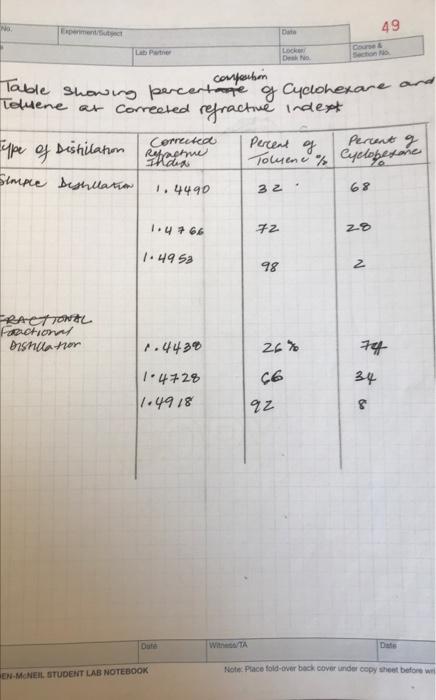 No.
Experiment/Subject
Date
49
Lab Partner
Locker/
Desk No.
Course &
Section No.
composition
Table showing percentage of Cyclohexane and
Toluene at corrected refractive index
Type of Distilation
Corrected
Refractive
Index
Percent of
Toluene %
Percent of
Cyclohexane
%
Simple Distillation 1.4490 32 68
1.4766 72 28
1.4953 98 2
FRACTIONAL
Fractional
Distillation 1.4438 26% 74
1.4728 66 34
1.4918 92 8
Date
Witness/TA
Date
EN-McNEIL STUDENT LAB NOTEBOOK
Note: Place fold-over back cover under copy sheet before